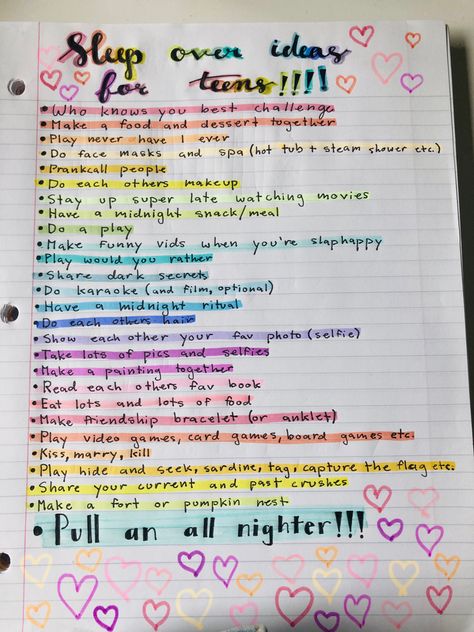 Sleep over ideas
for teens!!!!
• Who knows you best challenge
• Make a food and dessert together
• Play never have I ever
• Do face masks and spa (hot tub + steam shower etc.)
• Prankcall people
• Do each others makeup
• Stay up super late watching movies
• Have a midnight snack/meal
• Do a play
• Make funny vids when you're slaphappy
• Play would you rather
• Share dark secrets
• Do karaoke (and film, optional)
• Have a midnight ritual
• Do each others hair
• Show each other your fav photo (selfie)
• Take lots of pics and selfies
• Make a painting together
• Read each others fav book
• Eat lots and lots of food
• Make friendship bracelet (or anklet)
• Play video games, card games, board games etc.
• Kiss, marry, kill
• Play hide and seek, sardine, tag, capture the flag etc.
• Share your current and past crushes
• Make a fort or pumpkin nest
• Pull an all nighter!!!